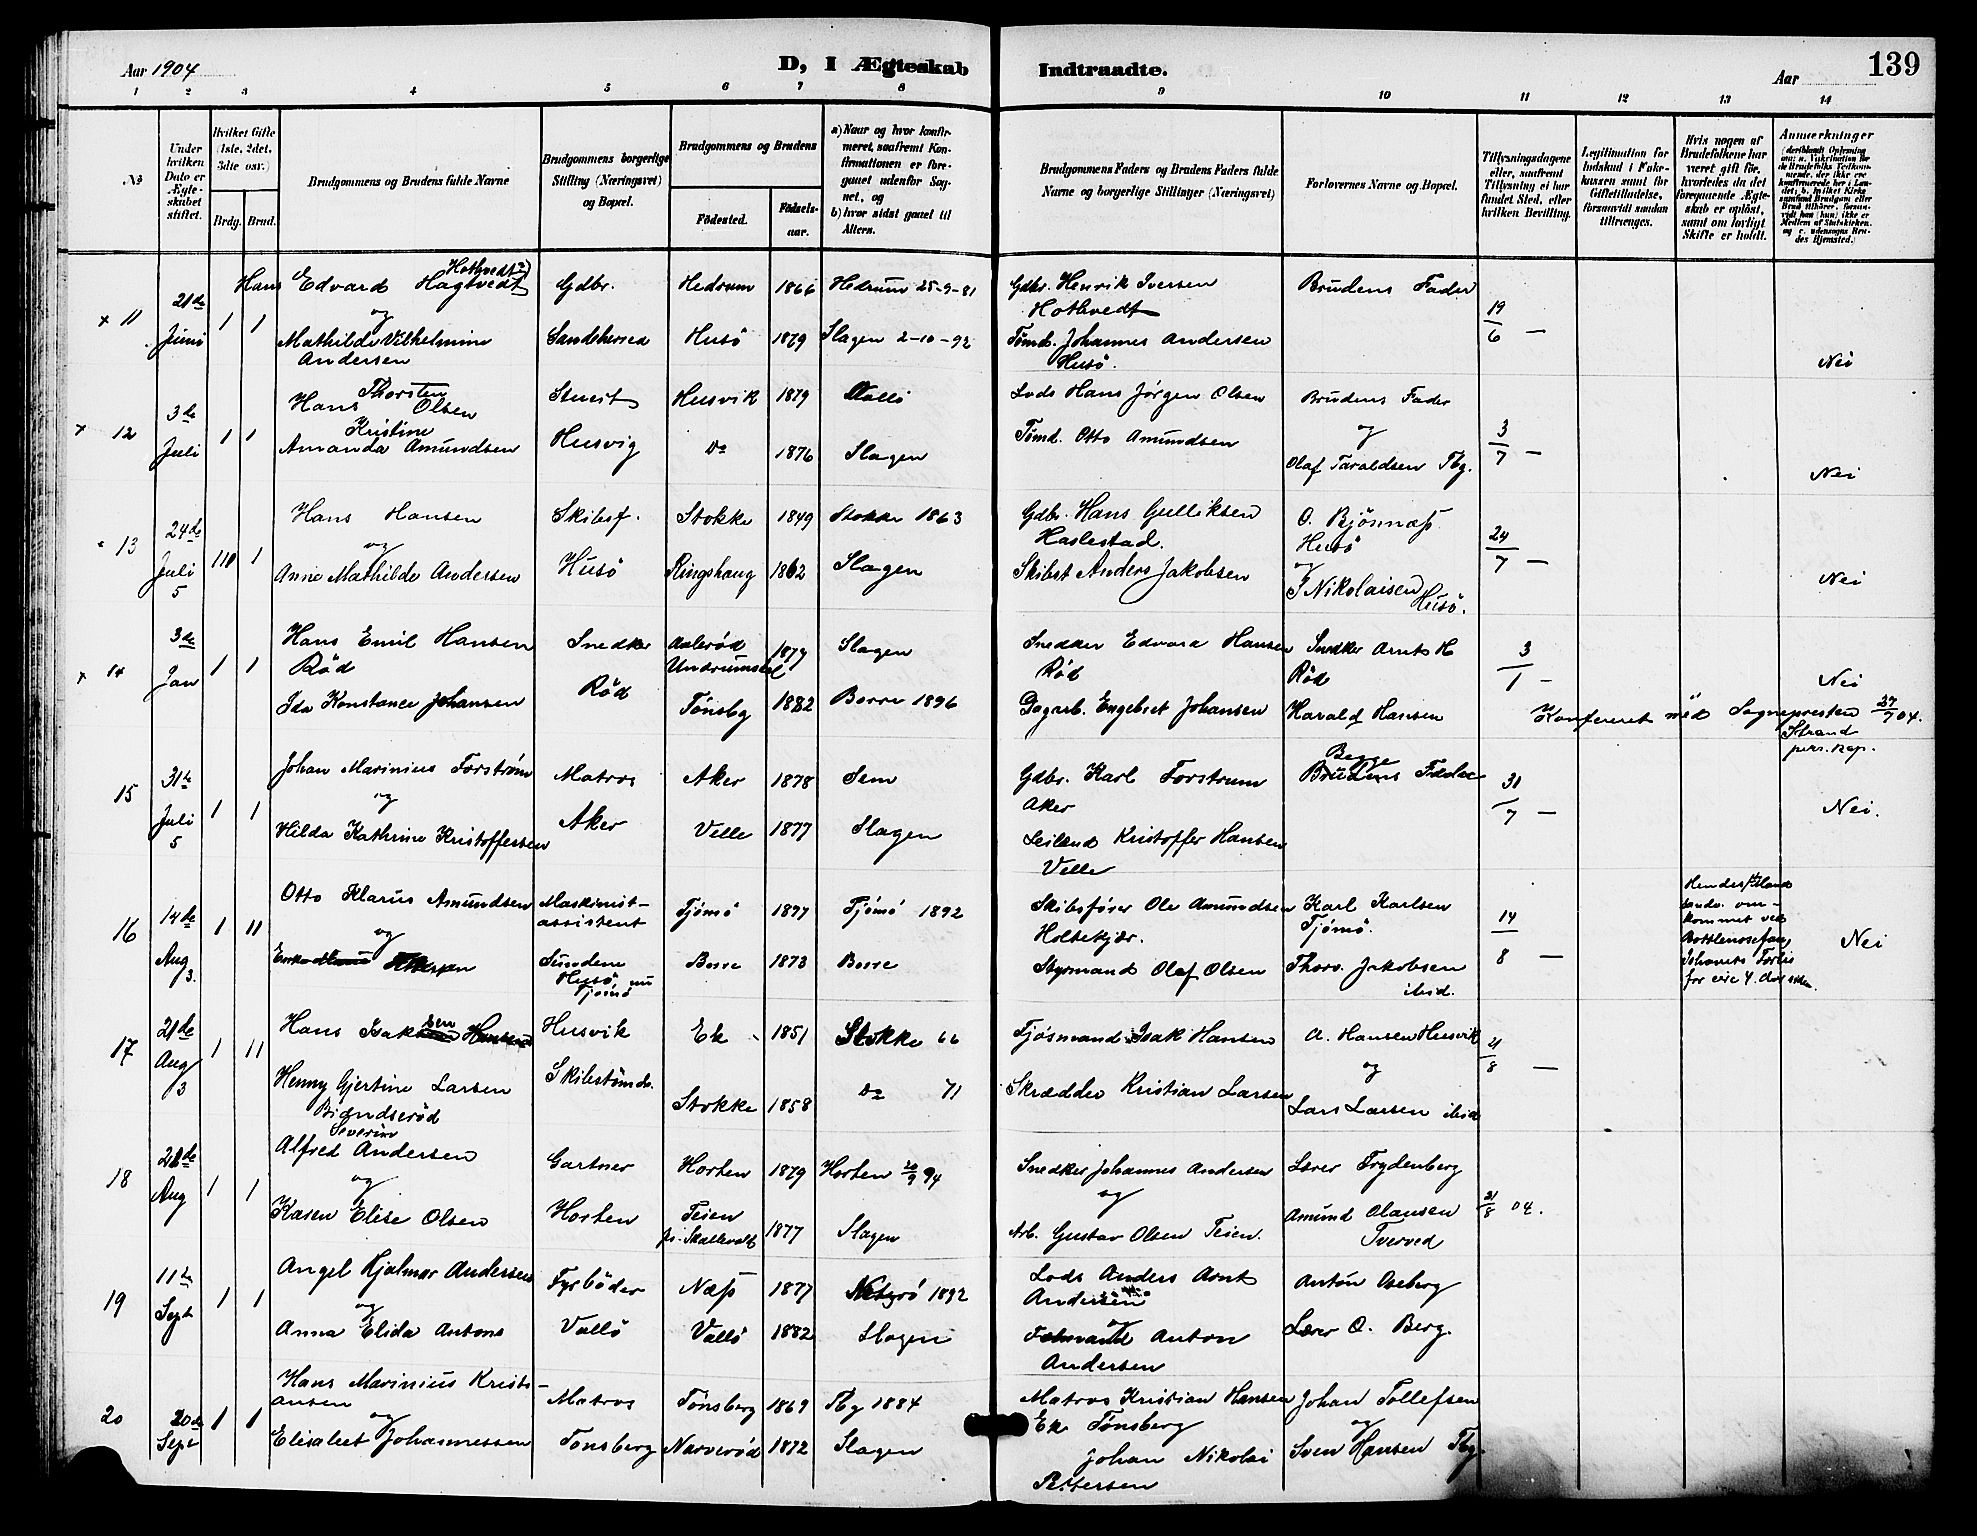 Aar 1904
D, I Ægteskab Indtraadte.
139
Aar
1 2 3 4 5 6 7 8 9 10 11 12 13 14
No
Under hvilken Dato er Ægteskabet stiftet.
Hvilket Gifte (1ste, 2det, 3die osv.)
Brdg. Brud.
Brudgommens og Brudens fulde Navne
Brudgommens borgerlige Stilling (Næringsvei) og Bopæl.
Brudgommens og Brudens
Födested.
Födselsaar.
a) Naar og hvor konfirmeret, saafremt Konfirmationen er foregaaet udenfor Sognet, og
b) hvor sidst gaaet til Alters.
Brudgommens Faders og Brudens Faders fulde Navne og borgerlige Stillinger (Næringsvei)
Forlovernes Navne og Bopæl.
Tillysningsdagene eller, saafremt Tillysning ei har fundet Sted, efter hvilken Bevilling.
Legitimation for Indskud i Enkekassen samt for Giftetilladelse, forsaavidt saadan tiltrænges.
Hvis nogen af Brudefolkene har været gift för, hvorledes da det foregaaende Ægteskab er oplöst, samt om lovligt Skifte er holdt.
Anmærkninger
11 21de Juni 1 1
Hans Edvard Hagtvedt
Hothvedt?)
og
Mathilde Vilhelmine
Andersen
Gdbr.
Sandeherred
Hedrum 1866 Hedrum 25-9-81
Husö 1879 Slagen 2-10-92
Gdbr. Henrik Iversen
Hothvedt
Tömd. Johannes Andersen
Husö.
Brudens Fader
19/6 —
Nei
12 3de Juli 1 1
Thorsten
Hans Olsen
Kristine
Amanda Amundsen
Stuert
Husvig
Husvik 1879 Vallö
Do 1876 Slagen
Lods Hans Jörgen Olsen
Tömd. Otto Amundsen
Brudens Fader
og
Olaf Taraldsen Tbg.
3/7 —
Nei
13 24de Juli 5
Hans Hansen
og
Anne Mathilde Andersen
Skibsf.
Husö
Stokke 1849 Stokke 1863
Ringshaug 1862 Slagen
Gdbr. Hans Gulliksen
Haslestad.
Skibst Anders Jakobsen
O. Bjönnæss.
Husö
og
J Nikolaisen
Husö.
24/7 —
Nei
14 3de Jan 1 1
Hans Emil Hansen
Röd
Ida Konstance Johansen
Snedker
Röd
Aaleröd
Undrumsdal 1877 Slagen
Tönsbg 1882 Borre 1896
Snedker Edvard Hansen
Röd
Dagarb. Engebret Johansen
Snedker Arnts H
Röd
Harald Hansen
3/1 —
Nei
Konfereret med Sognepresten 27/7 04.
Strand
pers. kap.
15 31te Juli 5 1 1
Johan Marinius Forström
og
Hilda Kathrine Kristoffersen
Matros
Aker
Aker 1878 Sem
Velle 1877 Slagen
Gdbr. Karl Forstrum
Aker
Leilænd Kristoffer Hansen
Velle
Begge
Brudens Fædre
31/7 —
Nei.
16 14de Aug 3. 1 11
Otto Klarus Amundsen
og
Maskinistassistent
Sundene
Husö, nu
Tjömö
Tjömö 1877 Tjömö 1892
Borre 1873 Borre
Skibsförer Ole Amundsen
Holtekjær.
Styrmand Olaf Olsen
Karl Karlsen
Tjömö.
Thorv. Jakobsen
ibid.
14/8 —
Hendes Mand
omkommet ved
Bottlenosefang
Nei
17 21de Aug 3 1 11
Hans Isaksen
Henny Gjertine Larsen
Brændseröd
Husvik
Skibstömd.
Ek 1851 Stokke 66
Stokke 1858 Do 71
Tjösmand Isak Hansen
Skrædder Kristian Larsen
A. Hansen Husvik
og
Lars Larsen ibid
21/8 —
18 21de Aug 1 1
Severin
Alfred Andersen
og
Karen Elise Olsen
Gartner
Horten
Horten 1879 Horten 30/9 94
Teien
pr. Skallevold 1877 Slagen
Snedker Johannes Andersen
og
Arb. Gustav Olsen Teien.
Lærer Frydenberg
Amund Olausen
Tverved
21/8 04.
19 11te Sept 1 1
Angel Hjalmar Andersen
og
Anna Elida Antons
Fyrböder
Vallö
Næss 1877 Nöterö 1892
Vallö 1882 Slagen
Lods Anders Arnt
Andersen
og
Anton
Andersen
Anton Oseberg
Lærer O. Berg.
20 20de Sept 1 1
Hans Marinius Kristiansen
og
Elisabet Johannessen
Matros
Tonsberg
Tönsberg 1869 Tbg 1884
Narveröd 1872 Slagen
Matros Kristian Hansen
Ek Tönsberg
Johan Nikolai
Pettersen
Johan Tollefsen
og
Sven Hansen Tbg.